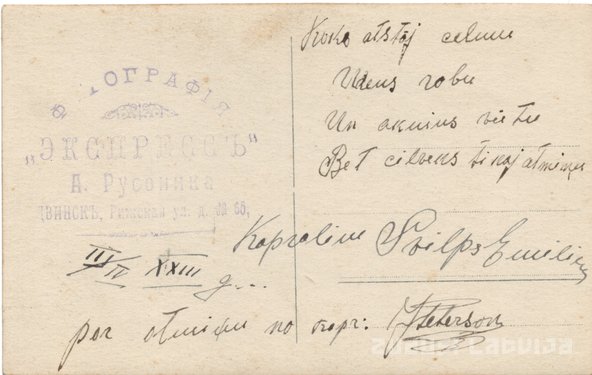 ФОТОГРАФІЯ
„ЭКСПРЕССЪ"
А. Русоника
ДВИНСКЪ, Рижская ул. д. № 66,
Koks atstāj celmu
Udens robu
Un akmins vietu
Bet cilvens tikaj atminu
Kapralim Svilps
III/IV XXIII g...
par atminu no
Peterson
zudusi Latvija